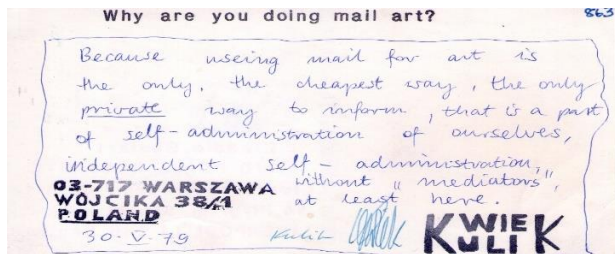 Why are you doing mail art?
863
Because useing mail for art is
the only, the cheapest way, the only
private way to inform, that is a part
of self-administration of ourselves,
independent self-administration,
without "mediators",
at least here.
03-717 WARSZAWA
WÓJCIKA 38/1
POLAND
30-V-79
Kulik Kwiek
KWIEK
KULIK